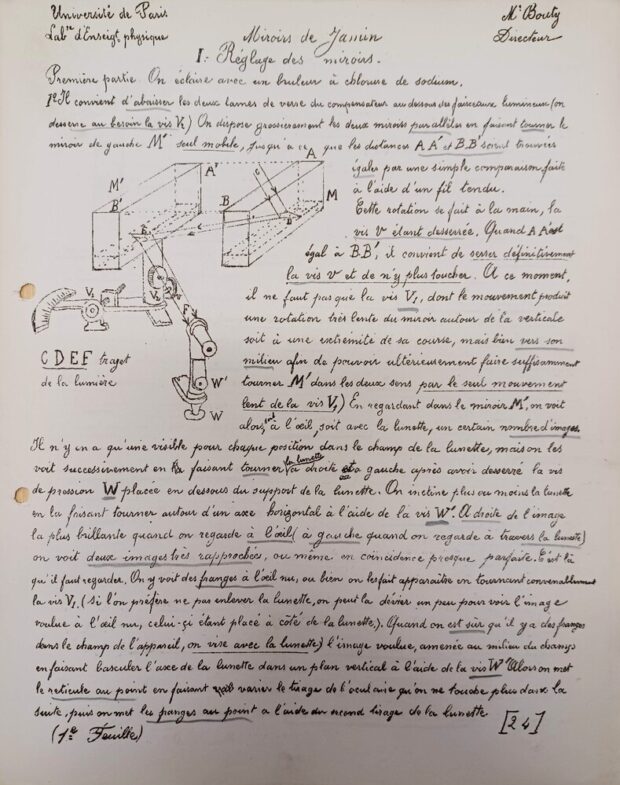 Université de Paris
Mr Bouty
Labre d'Enseigt physique
Miroirs de Jamin
Directeur
I: Réglage des miroirs.
Première partie. On éclaire avec un bruleur à chlorure de sodium.
1º Il convient d'abaisser les deux lames de verre du compensateur au dessous des faisceaux lumineux (on
desserre au besoin la vis V.) On dispose grossièrement les deux miroirs parallèles en faisant tourner le
miroir de gauche M' seul mobile, jusqu'à ce que les distances AA' et BB' soient trouvées
égales par une simple comparaison faite
à l'aide d'un fil tendu.
Cette rotation se fait à la main, la
vis v étant desserrée. Quand AA' est
égal à BB', il convient de serrer définitivement
la vis v et de n'y plus toucher. A ce moment,
il ne faut pas que la vis V1, dont le mouvement produit
une rotation très lente du miroir autour de la verticale
soit à une extrémité de sa course, mais bien vers son
milieu afin de pouvoir ultérieurement faire suffisamment
tourner M' dans les deux sens par le seul mouvement
lent de la vis V1) En regardant dans le miroir M', on voit
alors, soit à l'œil, soit avec la lunette, un certain nombre d'images.
A
A'
M'
B'
B
M
C
D
E
F
V1
CDEF trajet
de la lumière
W'
W
Il n'y en a qu'une visible pour chaque position dans le champ de la lunette, mais on les
voit successivement en faisant tourner la lunette à droite ou à gauche après avoir desserré la vis
de pression W placée en dessous du support de la lunette. On incline plus ou moins la lunette
en la faisant tourner autour d'un axe horizontal à l'aide de la vis W'. A droite de l'image
la plus brillante quand on regarde à l'œil (à gauche quand on regarde à travers la lunette)
on voit deux images très rapprochées, ou même en coïncidence presque parfaite. C'est là
qu'il faut regarder. On y voit des franges à l'œil nu, ou bien on les fait apparaître en tournant convenablement
la vis V1. (si l'on préfère ne pas enlever la lunette, on peut la dévier un peu pour voir l'image
voulue à l'œil nu, celui-çi étant placé à côté de la lunette.). Quand on est sûr qu'il y a des franges
dans le champ de l'appareil, on vise avec la lunette) l'image voulue, amenée au milieu du champ
en faisant basculer l'axe de la lunette dans un plan vertical à l'aide de la vis W' Alors on met
le réticule au point en faisant varier le tirage de l'oculaire qu'on ne touche plus dans la
suite, puis on met les franges au point à l'aide du second tirage de la lunette.
(1re Feuille)
[24]